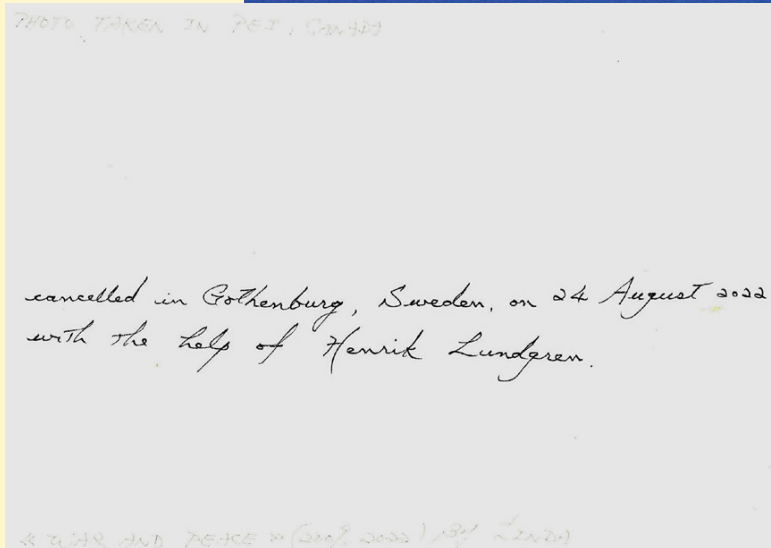 PHOTO TAKEN IN PEI, CANADA
cancelled in Gothenburg, Sweden, on 24 August 2022
with the help of Henrik Lundgren.
« WAR AND PEACE » (2022) By LINDA